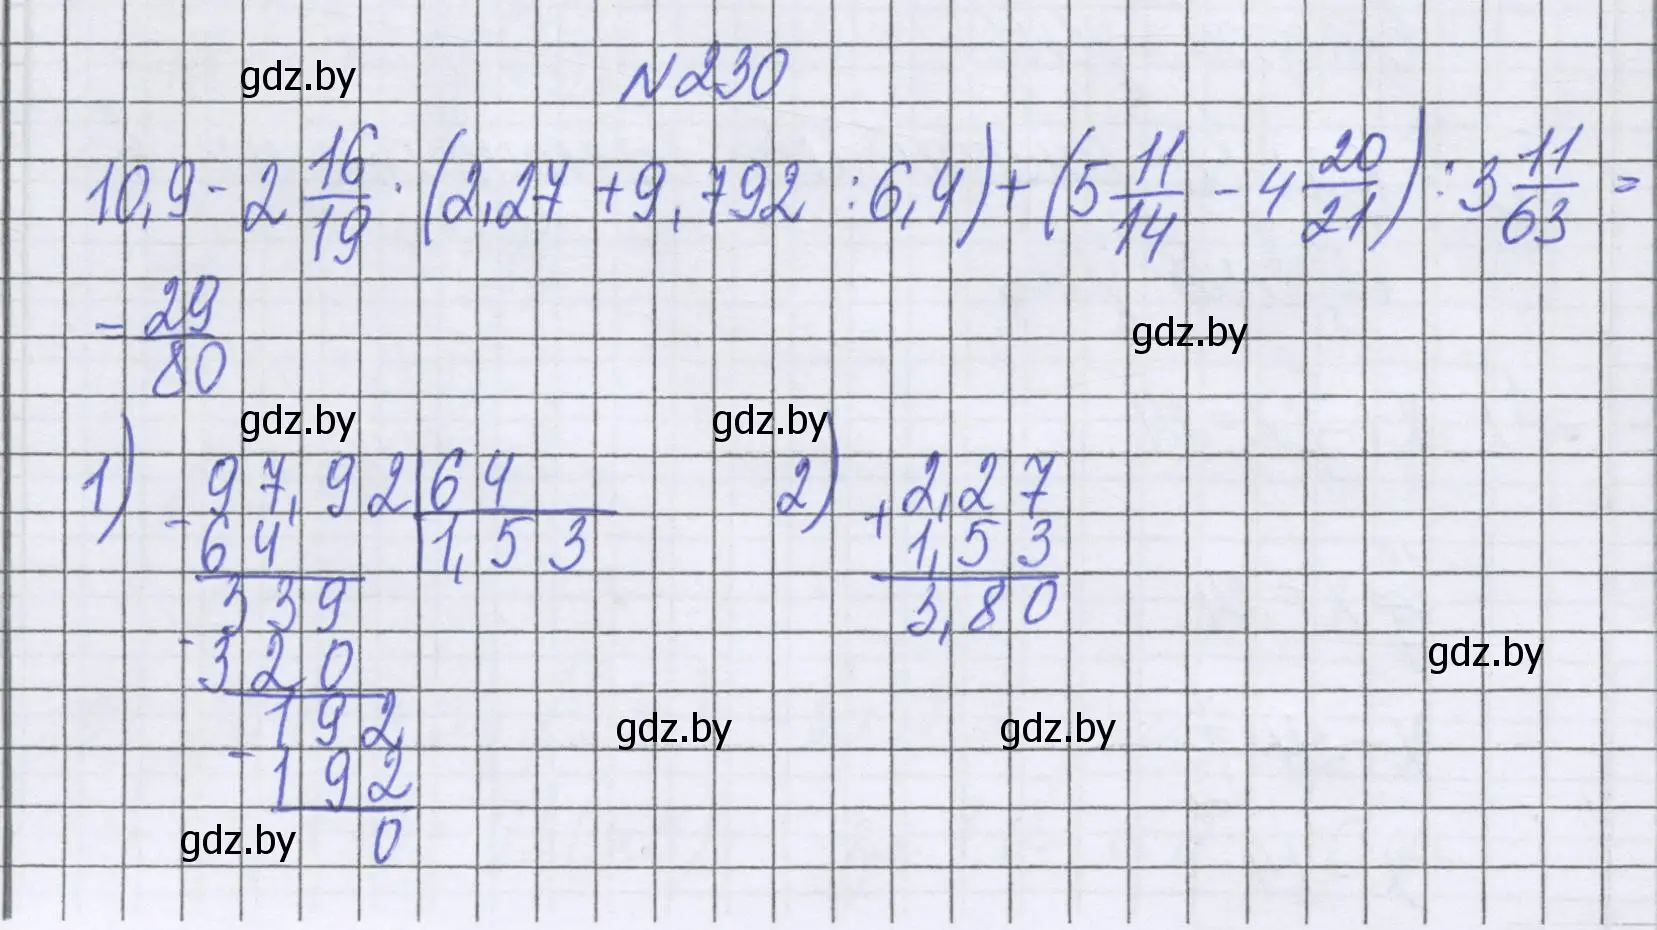 gdz.by
№230
10,9 - 2 16/19 · (2,27 + 9,792 : 6,4) + (5 11/14 - 4 20/21) : 3 11/63 =
= 29/80
gdz.by
gdz.by gdz.by
1) - 97,92 | 64 2) + 2,27
64 | 1,53 1,53
339 3,80
- 320
gdz.by
192
gdz.by gdz.by
- 192
0
gdz.by